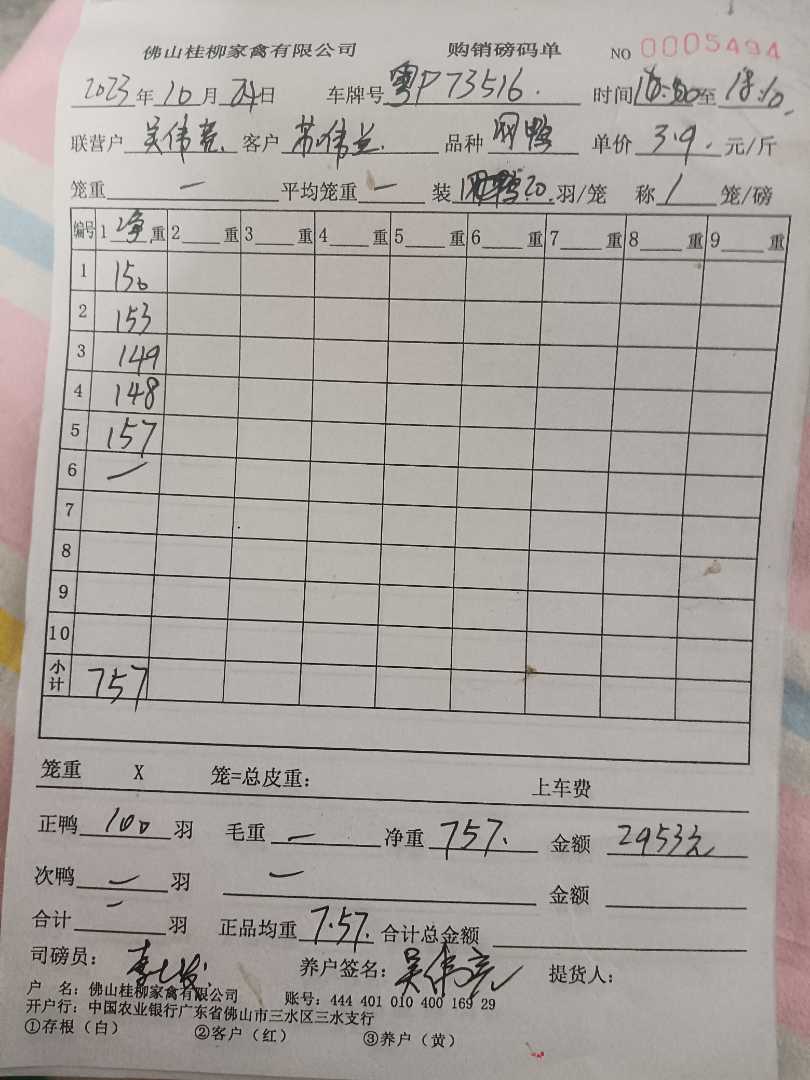 佛山桂柳家禽有限公司 购销磅码单 NO 0005494
2023年10月24日 车牌号粤P73516. 时间 至18:10.
联营户吴伟亮. 客户苏伟兰. 品种 鸭 单价3.9.元/斤
笼重一 平均笼重一 装 20.羽/笼 称1笼/磅
编号 1净重 2重 3重 4重 5重 6重 7重 8重 9重
1 150
2 153
3 149
4 148
5 157
6 一
7
8
9
10
小计 757
笼重 X 笼=总皮重: 上车费
正鸭100羽 毛重一 净重757. 金额2953元
次鸭一羽 一 金额
合计一羽 正品均重7.57. 合计总金额
司磅员: 李 养户签名: 吴伟亮 提货人:
户 名: 佛山桂柳家禽有限公司 账号: 444 401 010 400 169 29
开户行: 中国农业银行广东省佛山市三水区三水支行
①存根(白) ②客户(红) ③养户(黄)